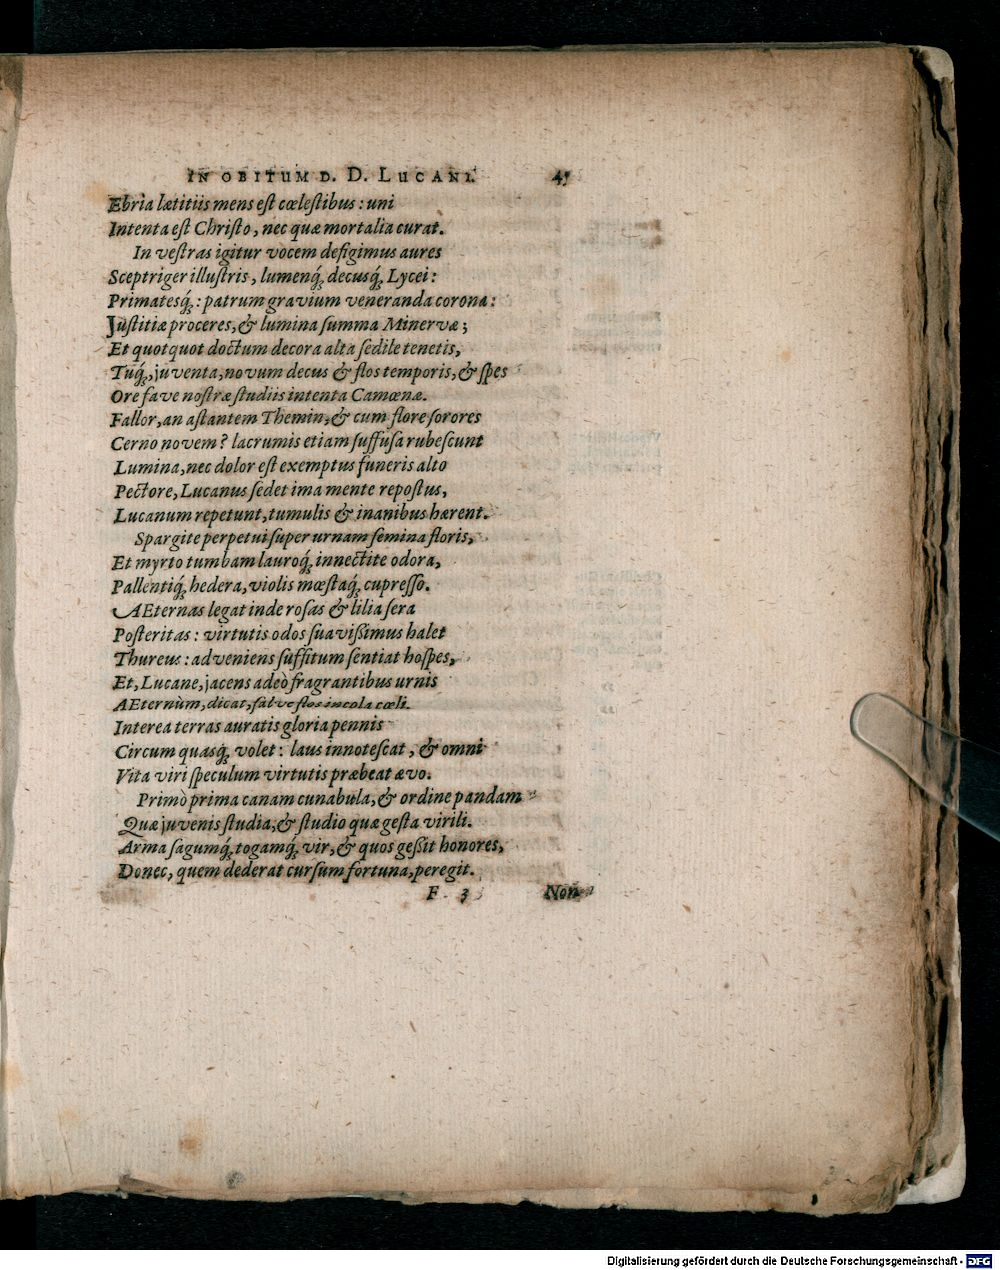 IN OBITUM D. D. LUCANI. 45
Ebria lætitiis mens eſt cœleſtibus: uni
Intenta eſt Chriſto, nec quæ mortalia curat.
In veſtras igitur vocem defigimus aures
Sceptriger illuſtris, lumenq́; decusq́; Lycei:
Primatesq́;: patrum gravium veneranda corona:
Juſtitiæ proceres, & lumina ſumma Minervæ;
Et quotquot doctum decora alta ſedile tenetis,
Tuq́;, juventa, novum decus & flos temporis, & ſpes
Ore fave noſtræ ſtudiis intenta Camœnæ.
Fallor, an aſtantem Themin, & cum flore ſorores
Cerno novem? lacrumis etiam ſuffuſa rubeſcunt
Lumina, nec dolor eſt exemptus funeris alto
Pectore, Lucanus ſedet ima mente repoſtus,
Lucanum repetunt, tumulis & inanibus hærent.
Spargite perpetui ſuper urnam ſemina floris,
Et myrto tumbam lauroq́; innectite odora,
Pallentiq́; hedera, violis mœſtaq́; cupreſſo.
AEternas legat inde roſas & lilia ſera
Poſteritas: virtutis odos ſuavißimus halet
Thureus: adveniens ſuffitum ſentiat hoſpes,
Et, Lucane, jacens adeò fragrantibus urnis
AEternùm, dicat, ſalve flos incola cœli.
Interea terras auratis gloria pennis
Circum quasq́; volet: laus innoteſcat, & omni
Vita viri ſpeculum virtutis præbeat ævo.
Primò prima canam cunabula, & ordine pandam
Quæ juvenis ſtudia, & ſtudio quæ geſta virili.
Arma ſagumq́; togamq́; vir, & quos geßit honores,
Donec, quem dederat curſum fortuna, peregit.
F 3 Non
Digitalisierung gefördert durch die Deutsche Forschungsgemeinschaft - DFG